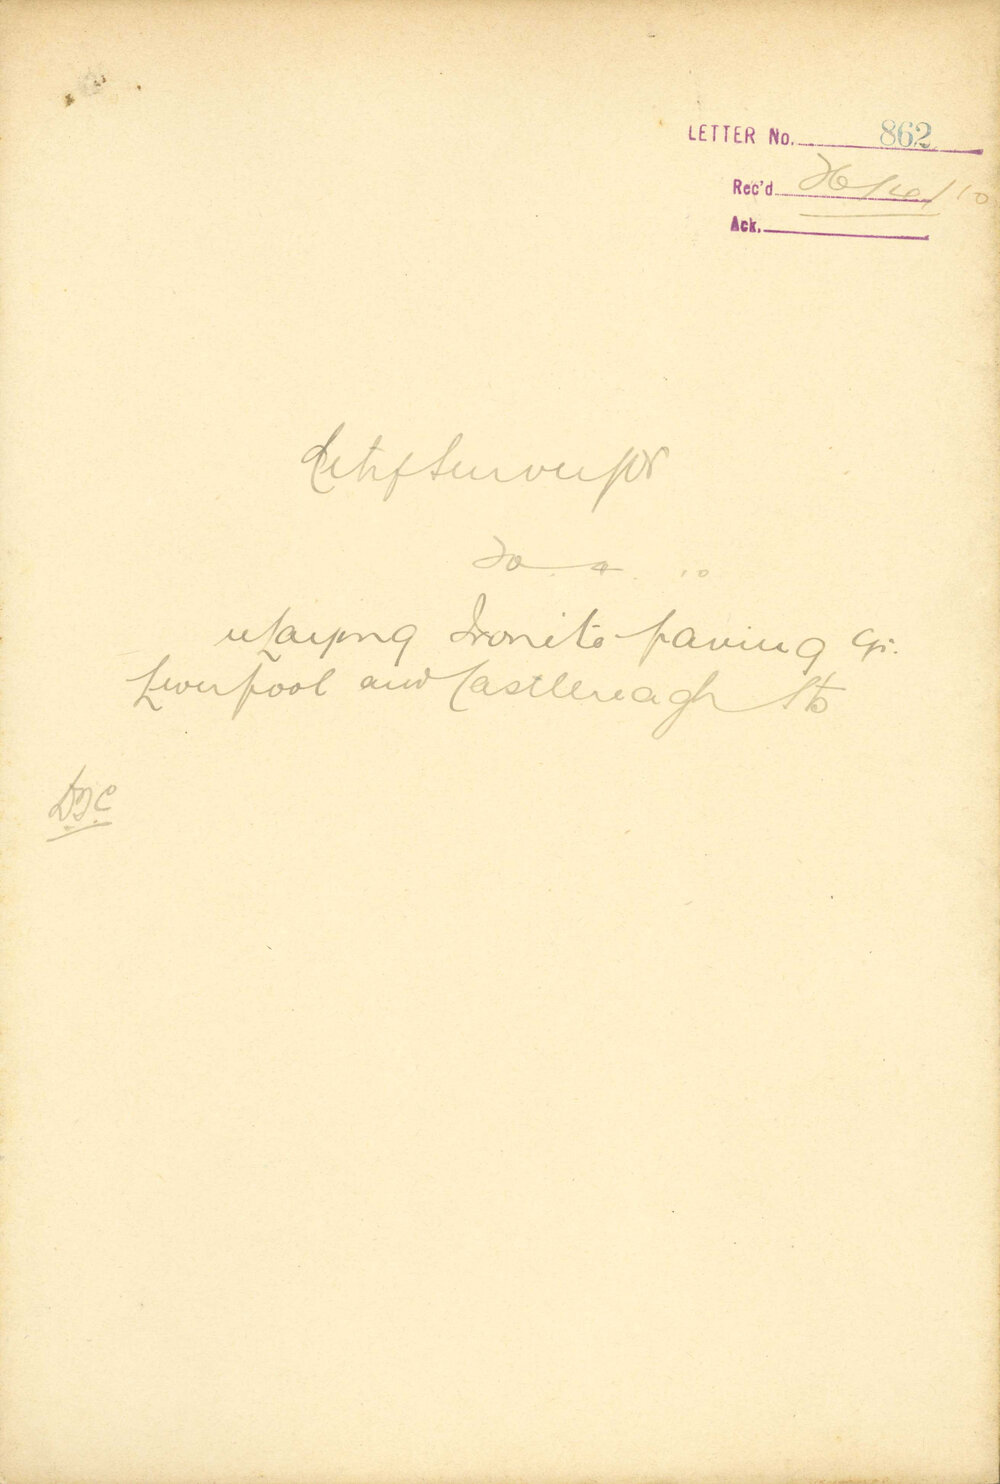 LETTER No. 862
Rec'd 26/10/10
Ack.
City Surveyor
relaying Ironite paving Cr.
Liverpool and Castlereagh Sts